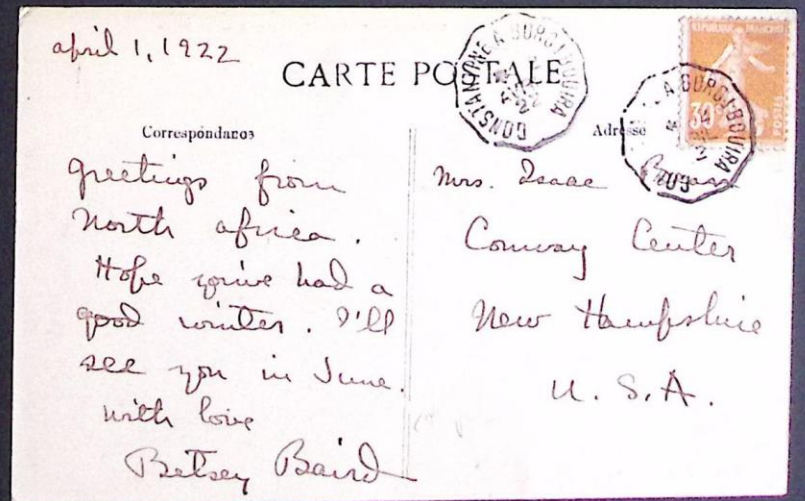 april 1, 1922
CARTE POSTALE
CONSTANTINE A BORDJ-BOUIRA
22
REPUBLIQUE FRANCAISE
30
POSTES
A BORDJ-BOUIRA
Correspondance
Adresse
Greetings from
North africa.
Hope you've had a
good winter. I'll
see you in June.
with love
Betsey Baird
Mrs. Isaac
Conway Center
New Hampshire
U. S. A.